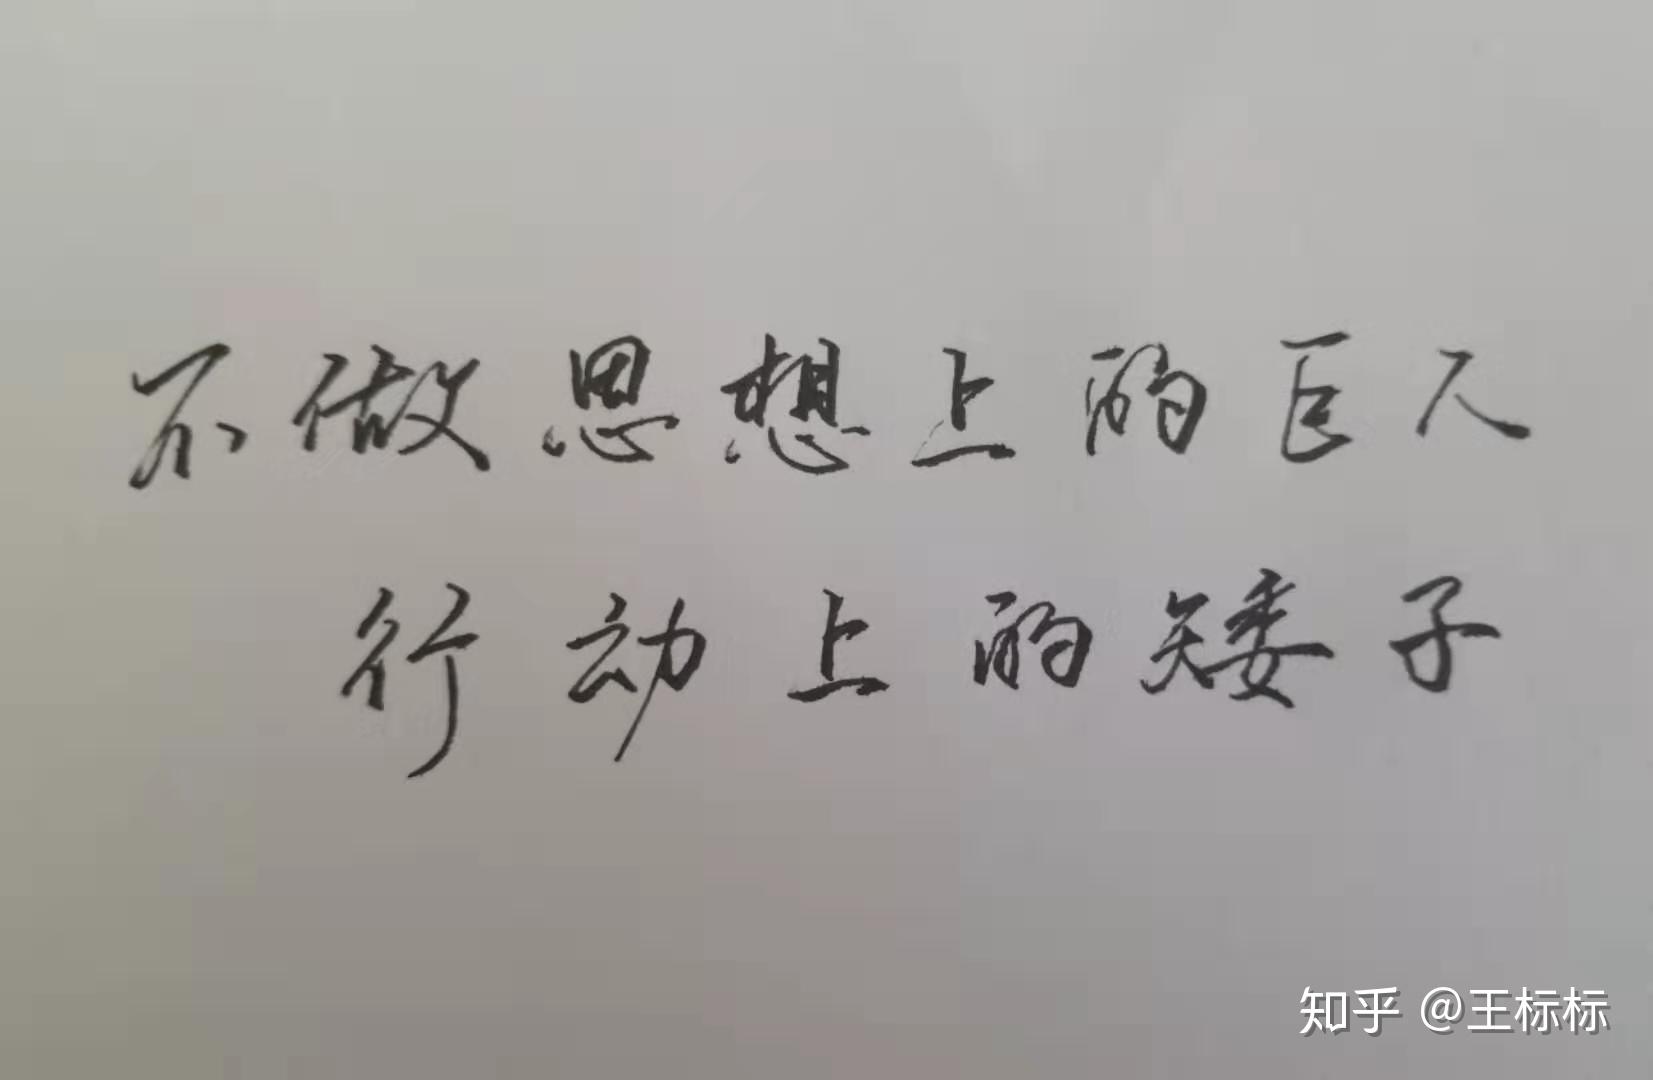 不做思想上的巨人
行动上的矮子
知乎 @王标标